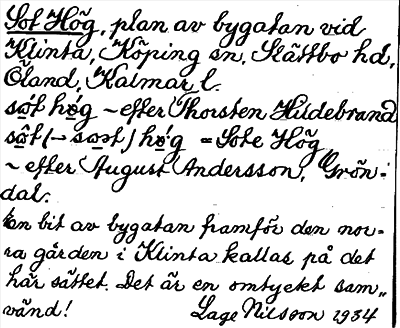 Sot Hög, plan av bygatan vid
Klinta, Köping sn, Slättbo hd,
Öland, Kalmar l.
so̲t hö̲́g ~ efter Thorsten Hildebrand
sô̲t (→ soət) hö̲́g = Sote Hög,
~ efter August Andersson, Grön-
dal.
En bit av bygatan framför den nor-
ra gården i Klinta kallas på det
här sättet. Det är en omtyckt sam-
vänd!
Lage Nilsson 1934